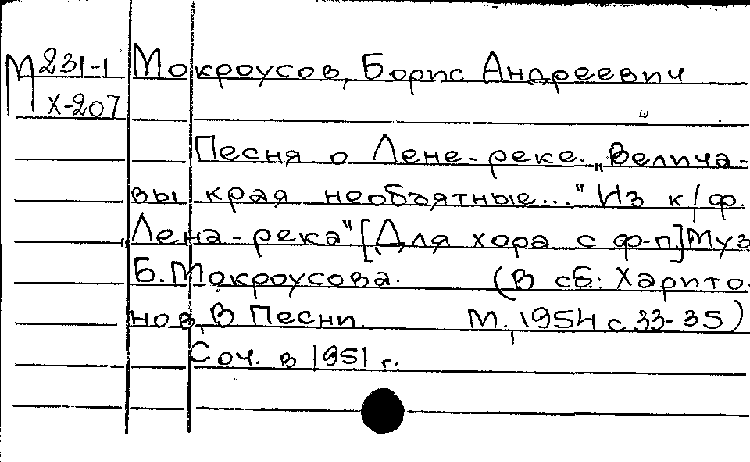 М 231-1 Мокроусов, Борис Андреевич
Х-207
Песня о Лене-реке. „Велича-
вы края необъятные..." Из к/ф.
Лена-река" [Для хора с ф-п] Муз
Б. Мокроусова. (В сб: Харито-
нов, В Песни. М., 1954 с. 33-35)
Соч. в 1951 г.